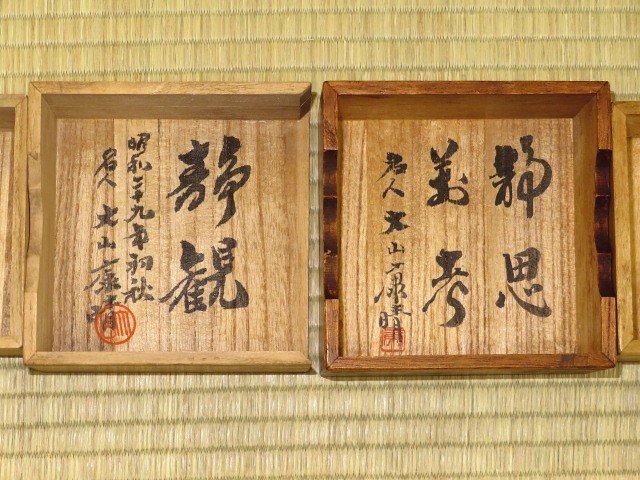 静観
昭和二十九年初秋
名人 大山康晴
静思
萬考
名人 大山康晴